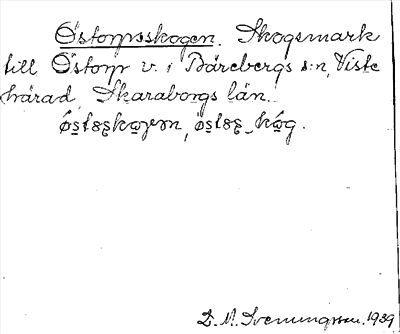 Östorpsskogen. Skogsmark
till Östorp v. i Bärebergs s:n, Viste
härad, Skaraborgs län.
D. M. Svenungsson. 1939